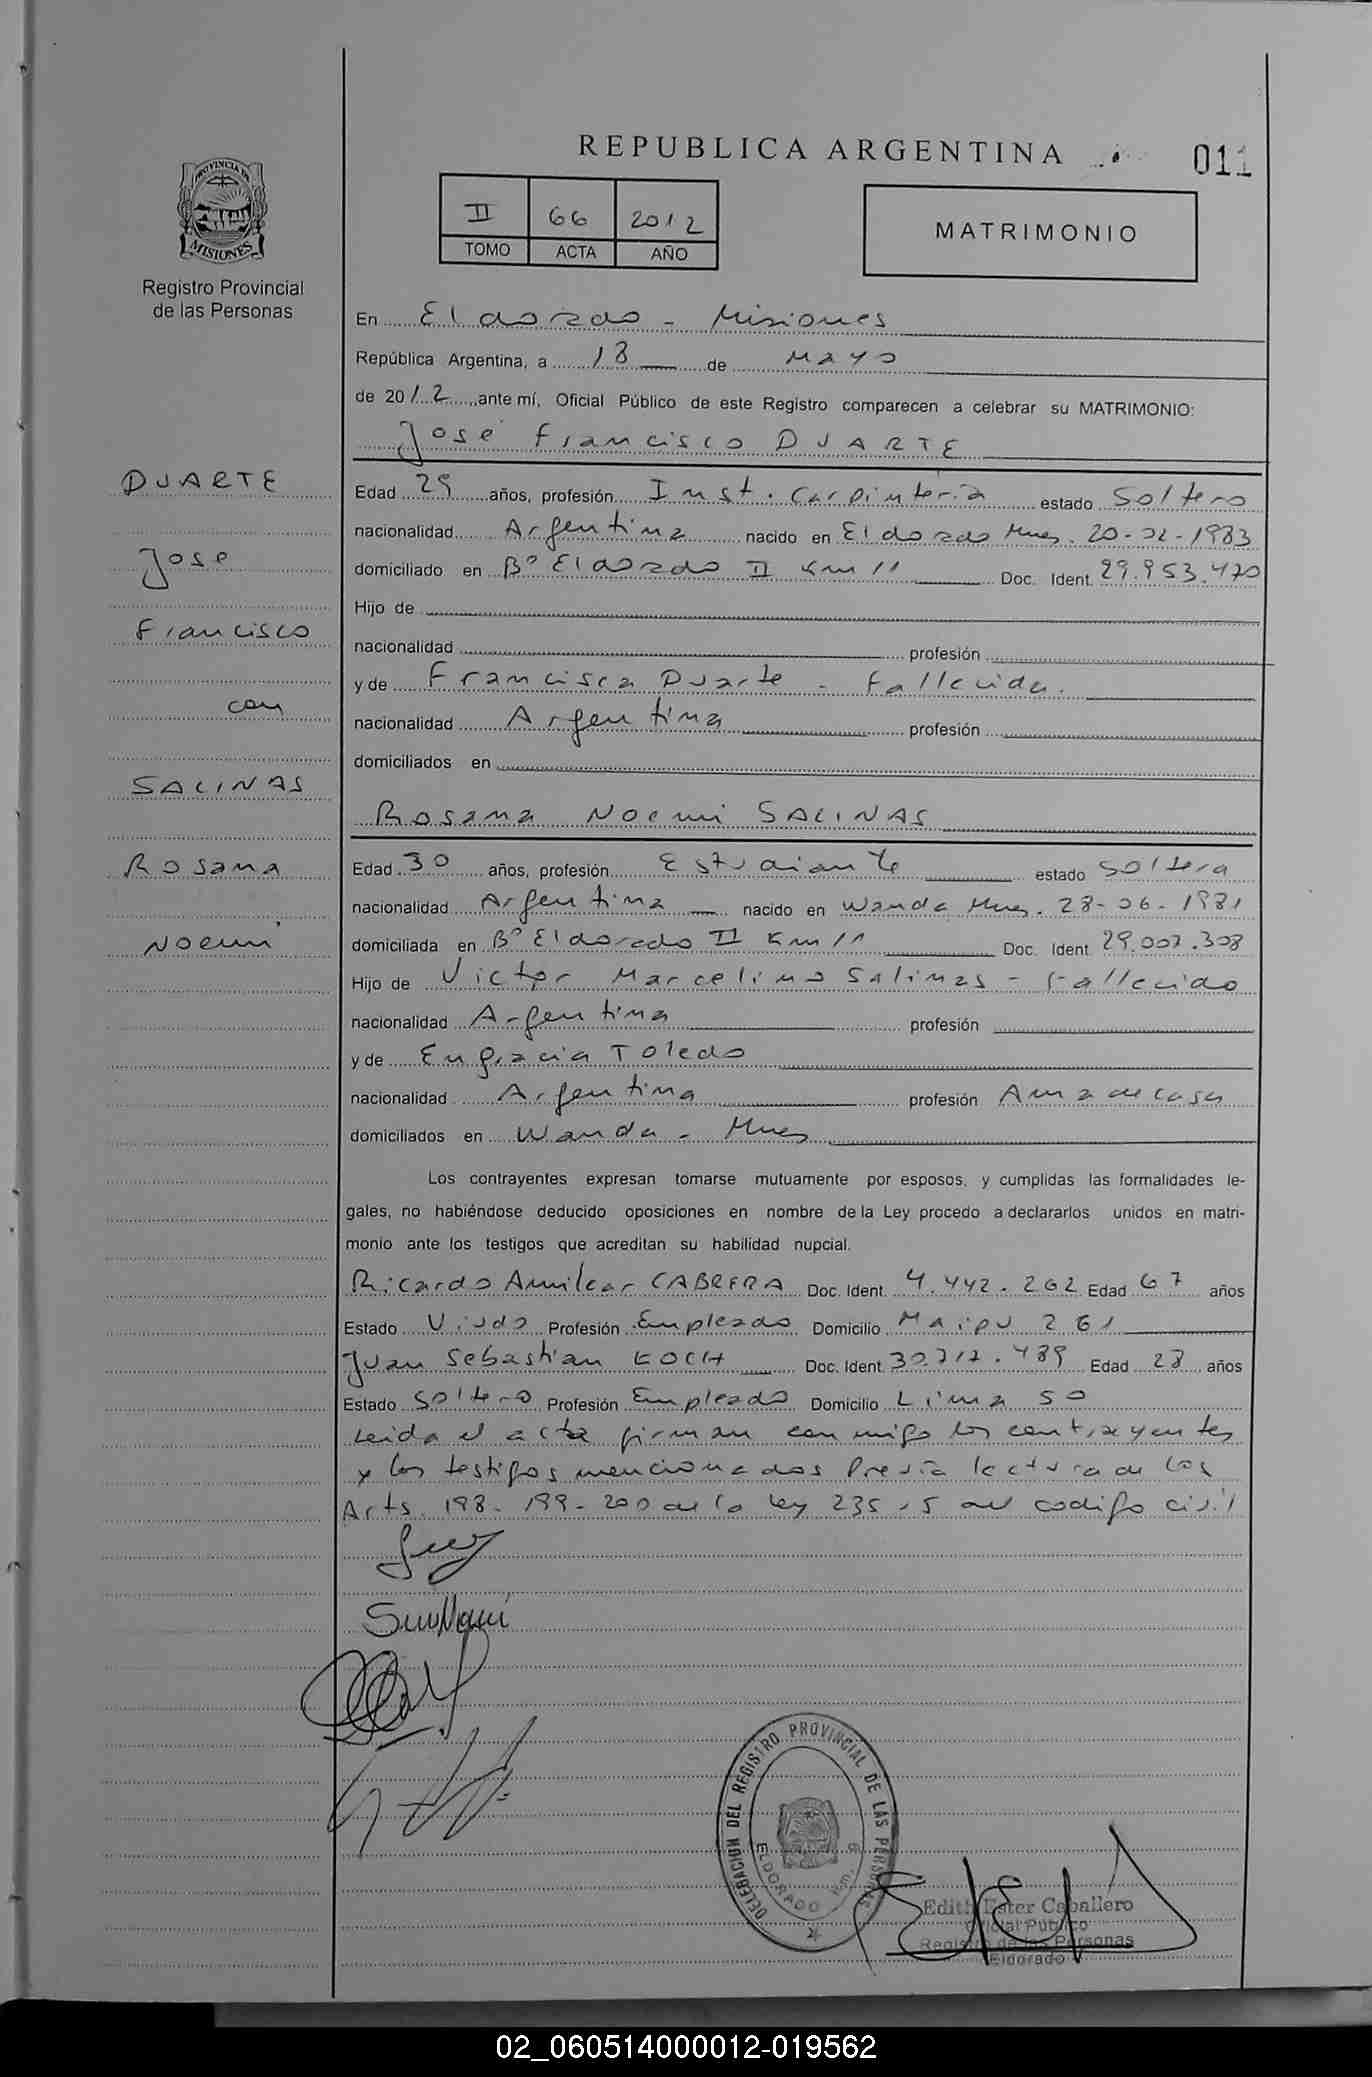 REPUBLICA ARGENTINA
011
II 66 2012
TOMO ACTA AÑO
MATRIMONIO
PROVINCIA DE
MISIONES
Registro Provincial
de las Personas
En Eldorado - Misiones
República Argentina, a 18 de Mayo
de 2012, ante mí, Oficial Público de este Registro comparecen a celebrar su MATRIMONIO:
José Francisco DUARTE
DUARTE
José
Francisco
con
SALINAS
Rosana
Noemi
Edad 29 años, profesión Inst. Carpintería estado Soltero
nacionalidad Argentina nacido en Eldorado Mnes. 20-02-1983
domiciliado en Bº Eldorado II Km 11 Doc. Ident. 29.953.470
Hijo de
nacionalidad profesión
y de Francisca Duarte - Fallecida.
nacionalidad Argentina profesión
domiciliados en
Rosana Noemi SALINAS
Edad 30 años, profesión Estudiante estado Soltera
nacionalidad Argentina nacido en Wanda Mnes. 28-06-1981
domiciliada en Bº Eldorado II Km 11 Doc. Ident. 29.007.308
Hijo de Victor Marcelino Salinas - Fallecido
nacionalidad Argentina profesión
y de Engracia Toledo
nacionalidad Argentina profesión Ama de casa
domiciliados en Wanda - Mnes
Los contrayentes expresan tomarse mutuamente por esposos, y cumplidas las formalidades le-
gales, no habiéndose deducido oposiciones en nombre de la Ley procedo a declararlos unidos en matri-
monio ante los testigos que acreditan su habilidad nupcial.
Ricardo Amilcar CABRERA Doc. Ident. 4.442.262 Edad 67 años
Estado Viudo Profesión Empleado Domicilio Maipu 261
Juan Sebastian KOCH Doc. Ident. 30.717.489 Edad 28 años
Estado Soltero Profesión Empleado Domicilio Lima 50
Leida el acta firman conmigo los contrayentes
y los testigos mencionados Previa lectura de los
Arts. 198-199-200 de la ley 23515 del codigo civil
DELEGACION DEL REGISTRO PROVINCIAL DE LAS PERSONAS
ELDORADO Km.
Edith Ester Caballero
Oficial Público
Registro de las Personas
Eldorado
02_060514000012-019562